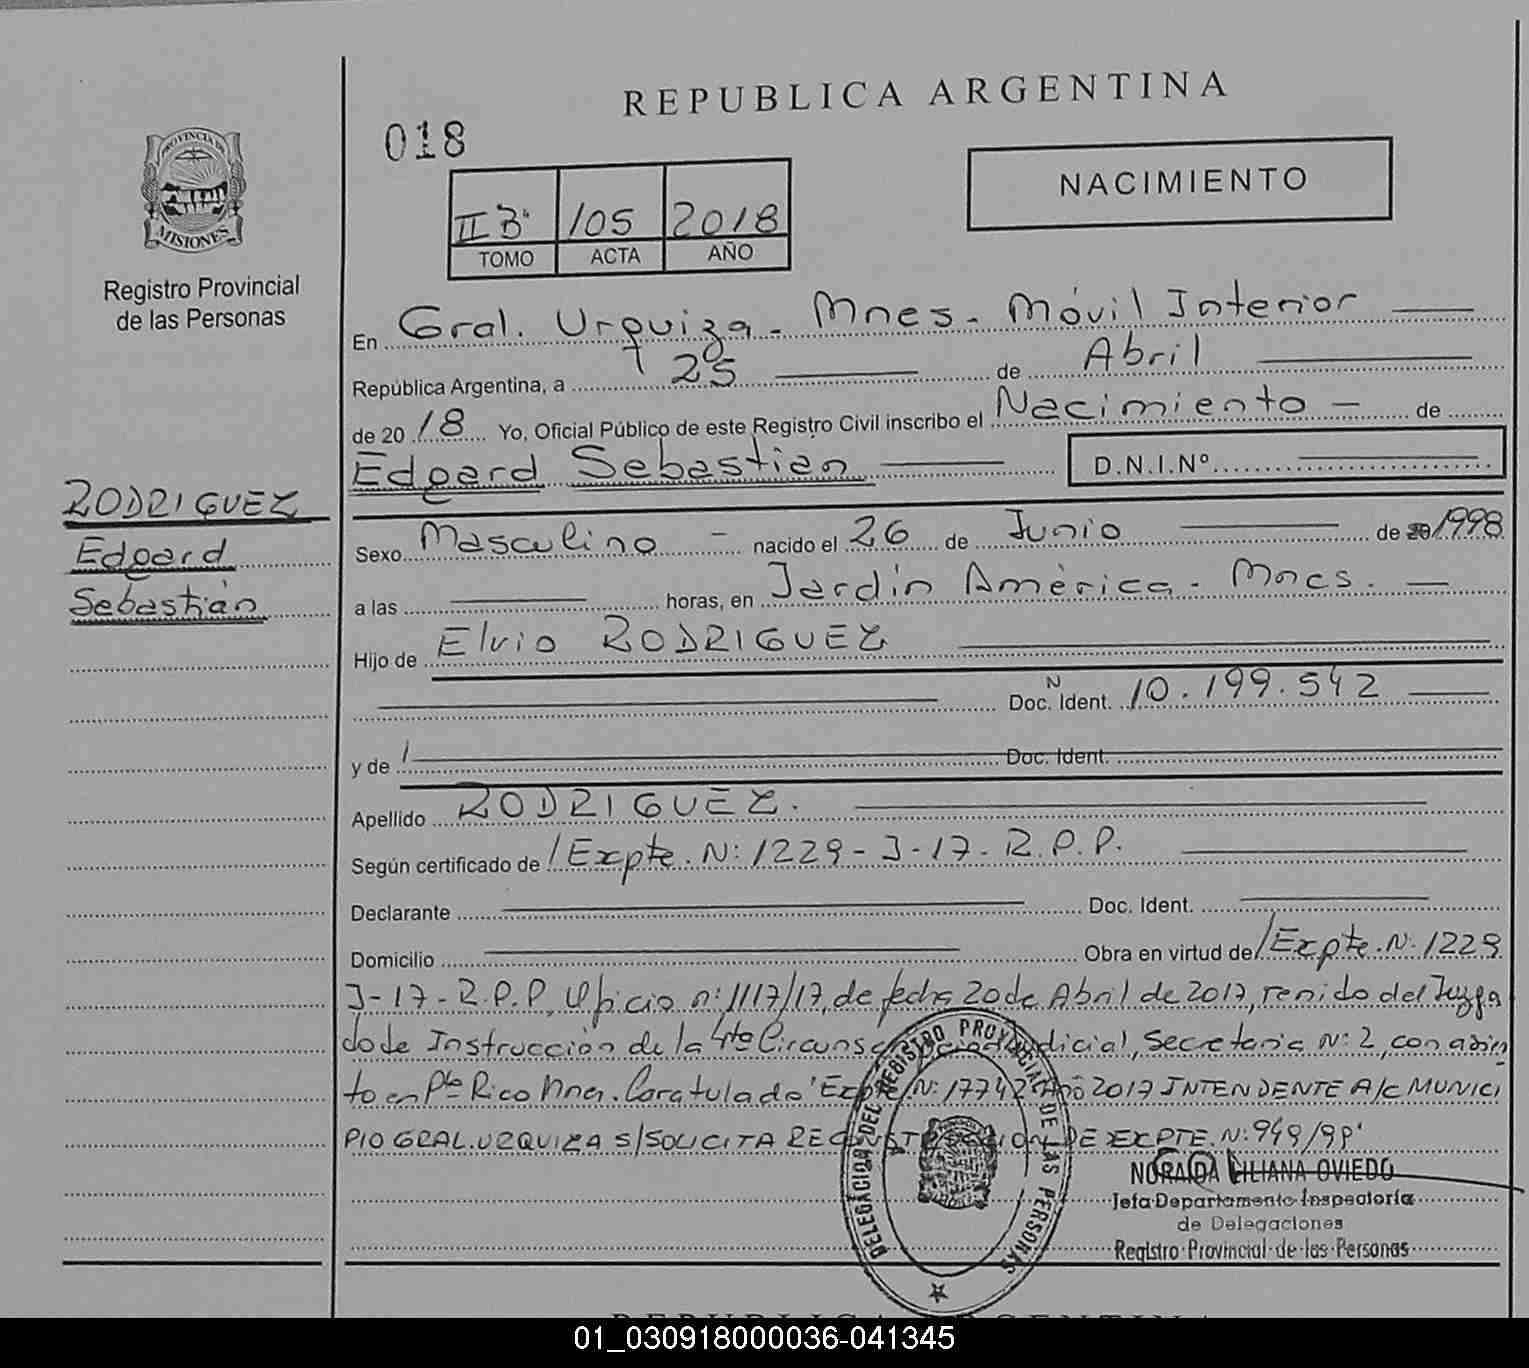 REPUBLICA ARGENTINA
018
NACIMIENTO
PROVINCIA DE
MISIONES
Registro Provincial
de las Personas
II B' 105 2018
TOMO ACTA AÑO
En Gral. Urquiza - Mnes - Móvil Interior
República Argentina, a 25 de Abril
de 2018 Yo, Oficial Público de este Registro Civil inscribo el Nacimiento - de
Edgard Sebastian D.N.I.Nº
RODRIGUEZ
Edgard
Sebastián
Sexo Masculino - nacido el 26 de Junio de 1998
a las horas, en Jardín América - Mnes.
Hijo de Elvio RODRIGUEZ
Doc. N Ident. 10.199.542
y de / Doc. Ident.
Apellido RODRIGUEZ.
Según certificado de /Expte. N: 1229-J-17-R.P.P.
Declarante Doc. Ident.
Domicilio Obra en virtud de/Expte. N: 1229
J-17-R.P.P, Oficio n: 1117/17, de fecha 20 de Abril de 2017, renido del Juzga
do de Instrucción de la 4ta Circunscripción Judicial, Secretaria N: 2, con asien
to en Pto Rico Mnes. Caratulado "Expte N: 17742 Año 2017 INTENDENTE A/C MUNICI
PIO GRAL. URQUIZA S/SOLICITA RECONSTRUCCION DE EXPTE. N: 949/98"
DELEGACION DEL REGISTRO PROVINCIAL DE LAS PERSONAS
NORAIDA LILIANA OVIEDO
Jefa Departamento Inspectoría
de Delegaciones
Registro Provincial de las Personas
REPUBLICA ARGENTINA
01_030918000036-041345